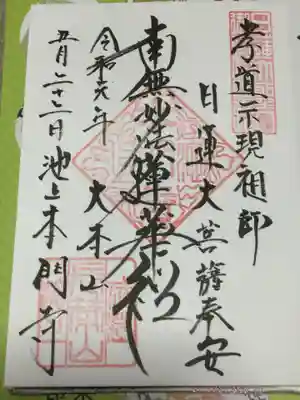 孝道示現祖師
日蓮大菩薩奉安
南無妙法蓮華経
大本山
令和元年
五月二十二日池上本門寺